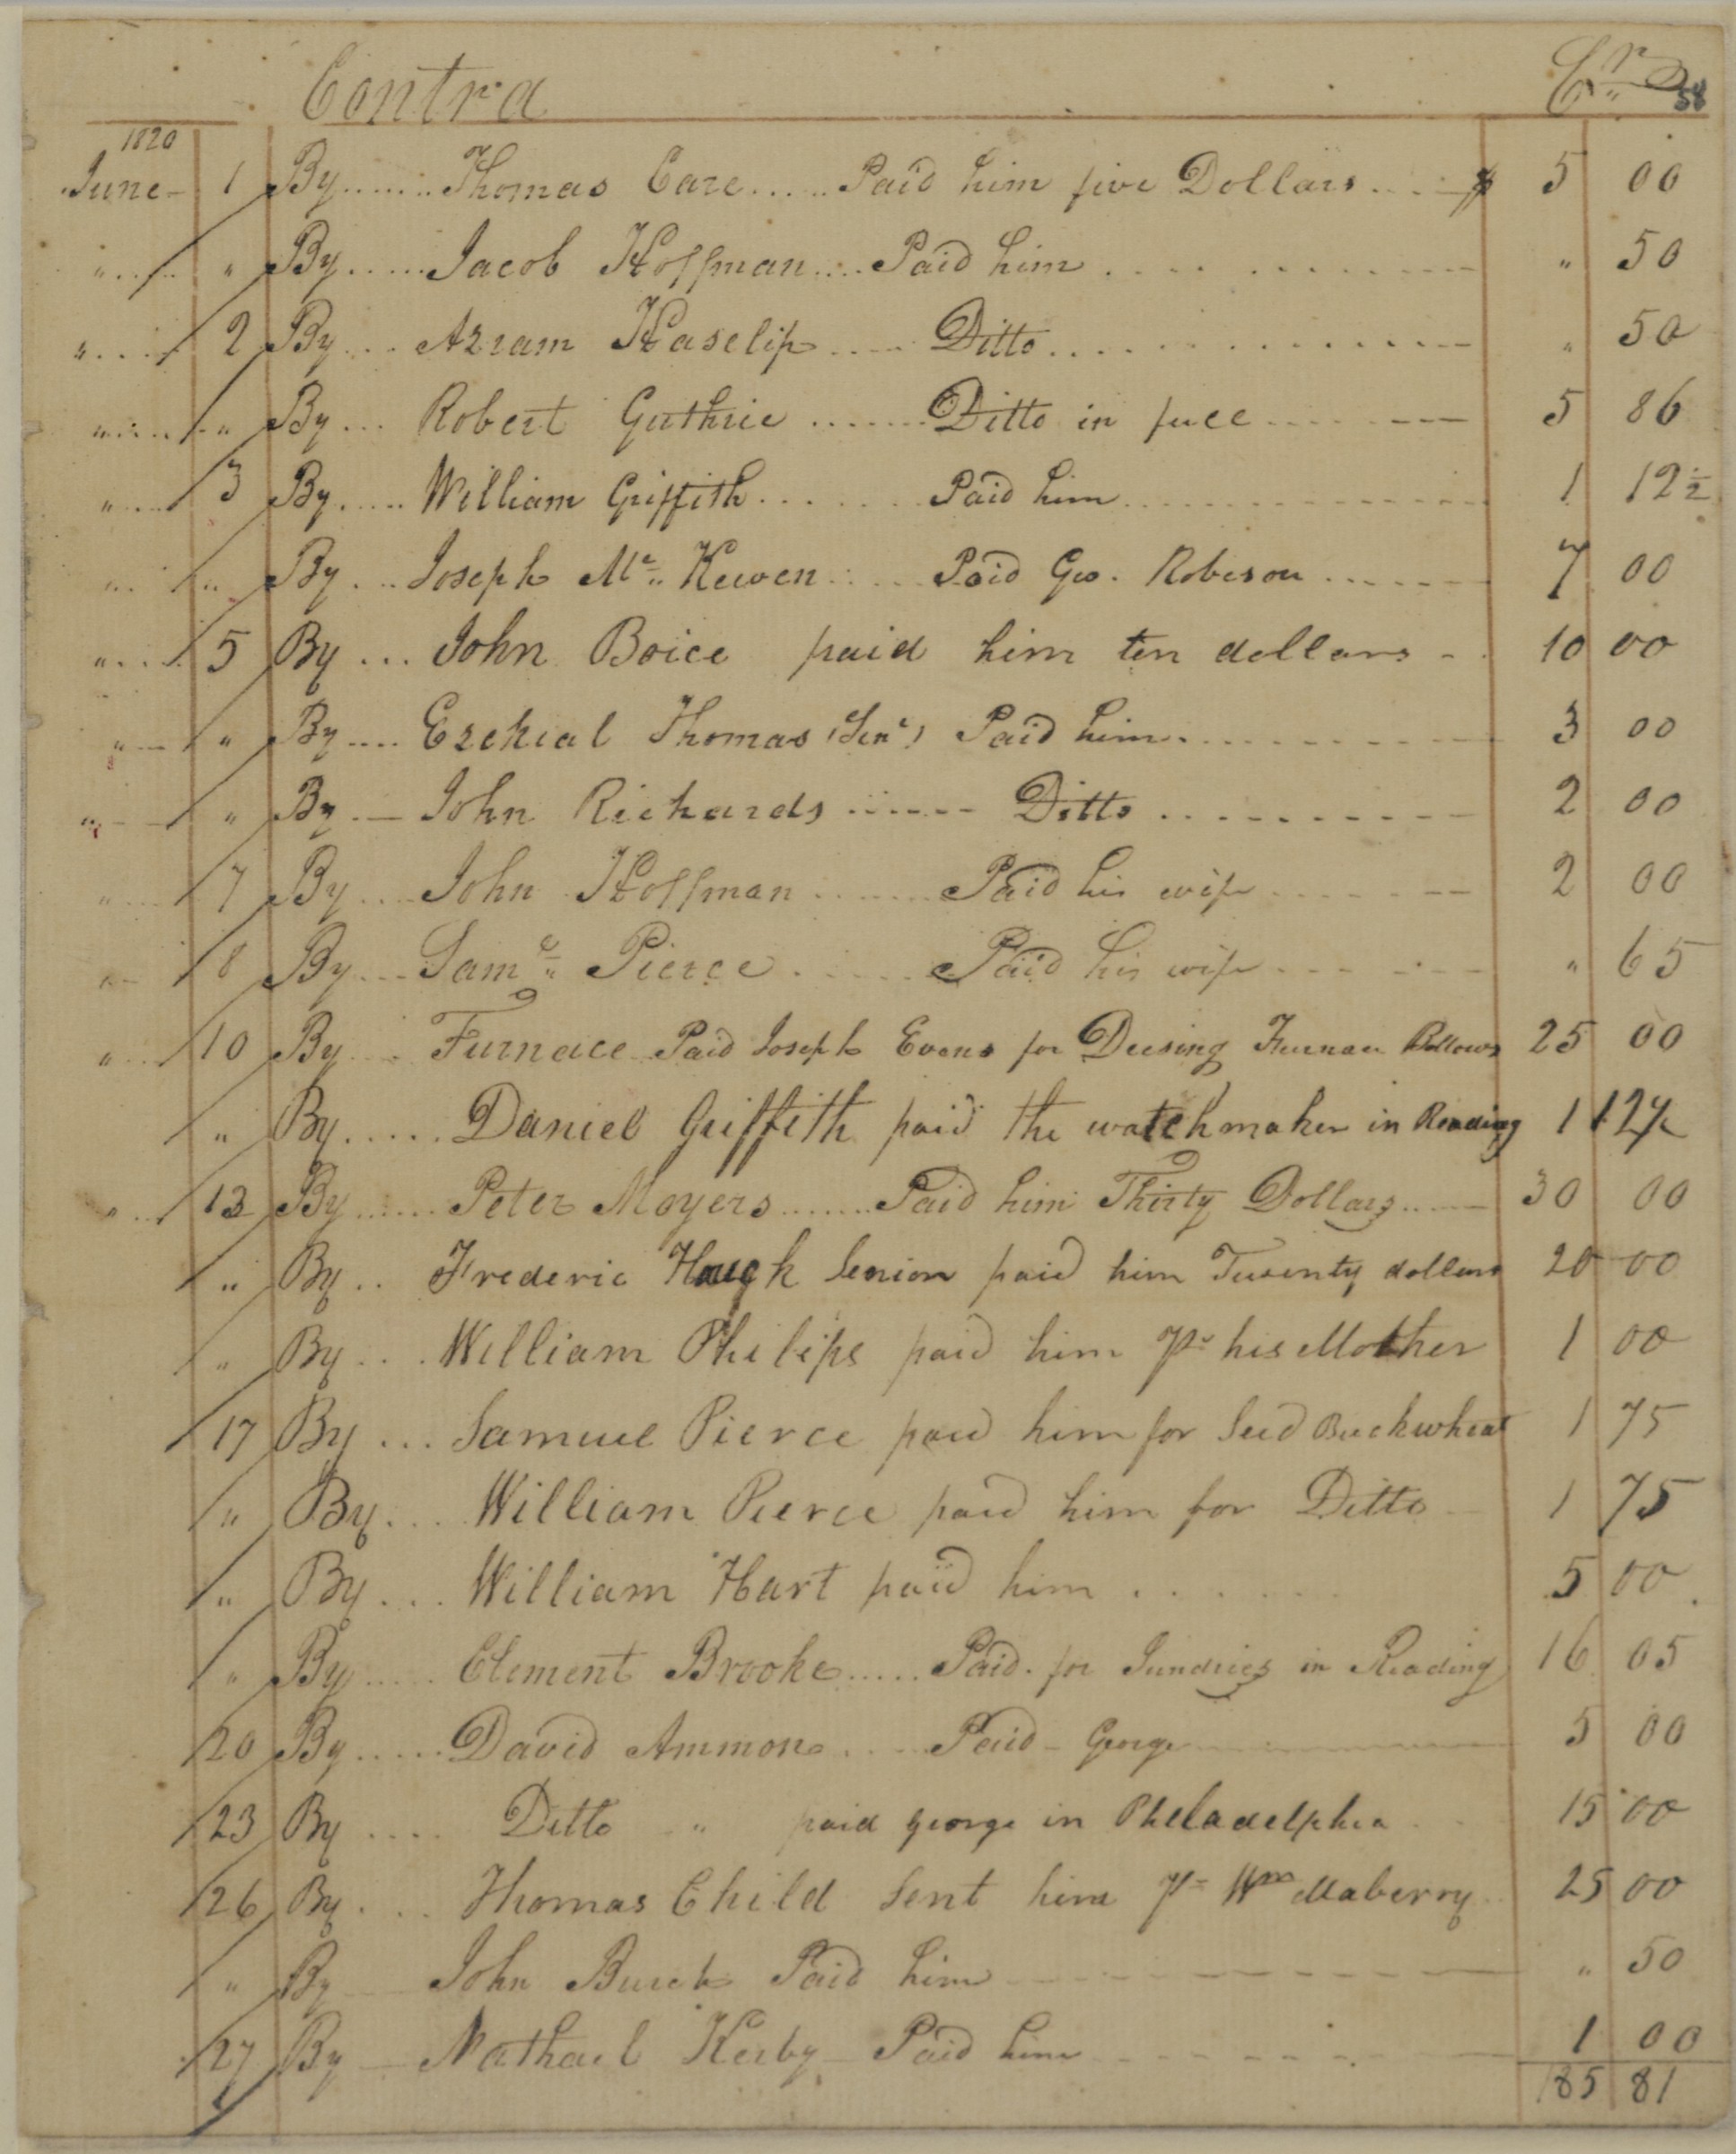 Contra Cr 58
1820
June 1 By Thomas Care Paid him five Dollars $ 5 00
" " By Jacob Hoffman Paid him " 50
" 2 By Azram Haselip Ditto " 50
" " By Robert Guthrie Ditto in full 5 86
" 3 By William Griffith Paid him 1 12½
" " By Joseph Mc Kewen Paid Geo. Robison 7 00
" 5 By John Boice paid him ten dollars 10 00
" " By Ezekial Thomas (Senr) Paid him 3 00
" " By John Richards Ditto 2 00
" 7 By John Hoffman Paid his wife 2 00
" 8 By Saml Pierce Paid his wife " 65
" 10 By Furnace Paid Joseph Evens for Furnace Bellows 25 00
" By Daniel Griffith paid the watchmaker in Reading 1 12½
" 13 By Peter Moyers Paid him Thirty Dollars 30 00
" By Frederic Hough Senior paid him Twenty dollars 20 00
" By William Philips paid him pr his Mother 1 00
17 By Samuel Pierce paid him for Seed Buckwheat 1 75
" By William Pierce paid him for Ditto 1 75
" By William Hart paid him 5 00
" By Clement Brooke Paid for Sundries in Reading 16 05
20 By David Ammons Paid George 5 00
23 By Ditto " paid george in Philadelphia 15 00
26 By Thomas Child Sent him pr Wm Maberry 25 00
" By John Burch Paid him " 50
27 By Nathael Kerby Paid him 1 00
185 81